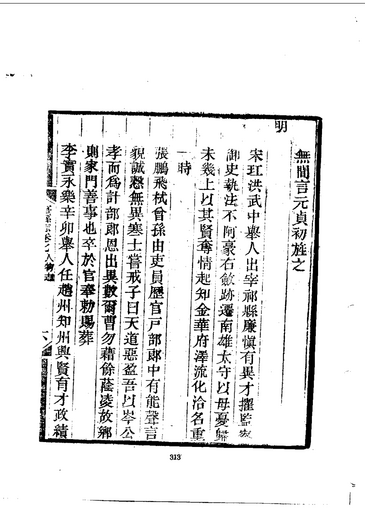 無間言元貞初旌之
明
宋玒洪武中舉人出宰祁縣廉慎有異才擢監察
御史執法不阿豪右斂跡遷南雄太守以母憂歸
未幾上以其賢奪情起知金華府澤流化洽名重
一時
張鵬飛栻曾孫由吏員歷官戶部郎中有能聲言
貌誠愨無異寒士嘗戒子曰天道惡盈吾以岑公
孝而爲計部郎恩出異數爾曹勿藉餘蔭凌故鄉
則家門善事也卒於官奉勅賜葬
李實永樂辛卯舉人任趙州知州興賢育才政績
卷七人物
313